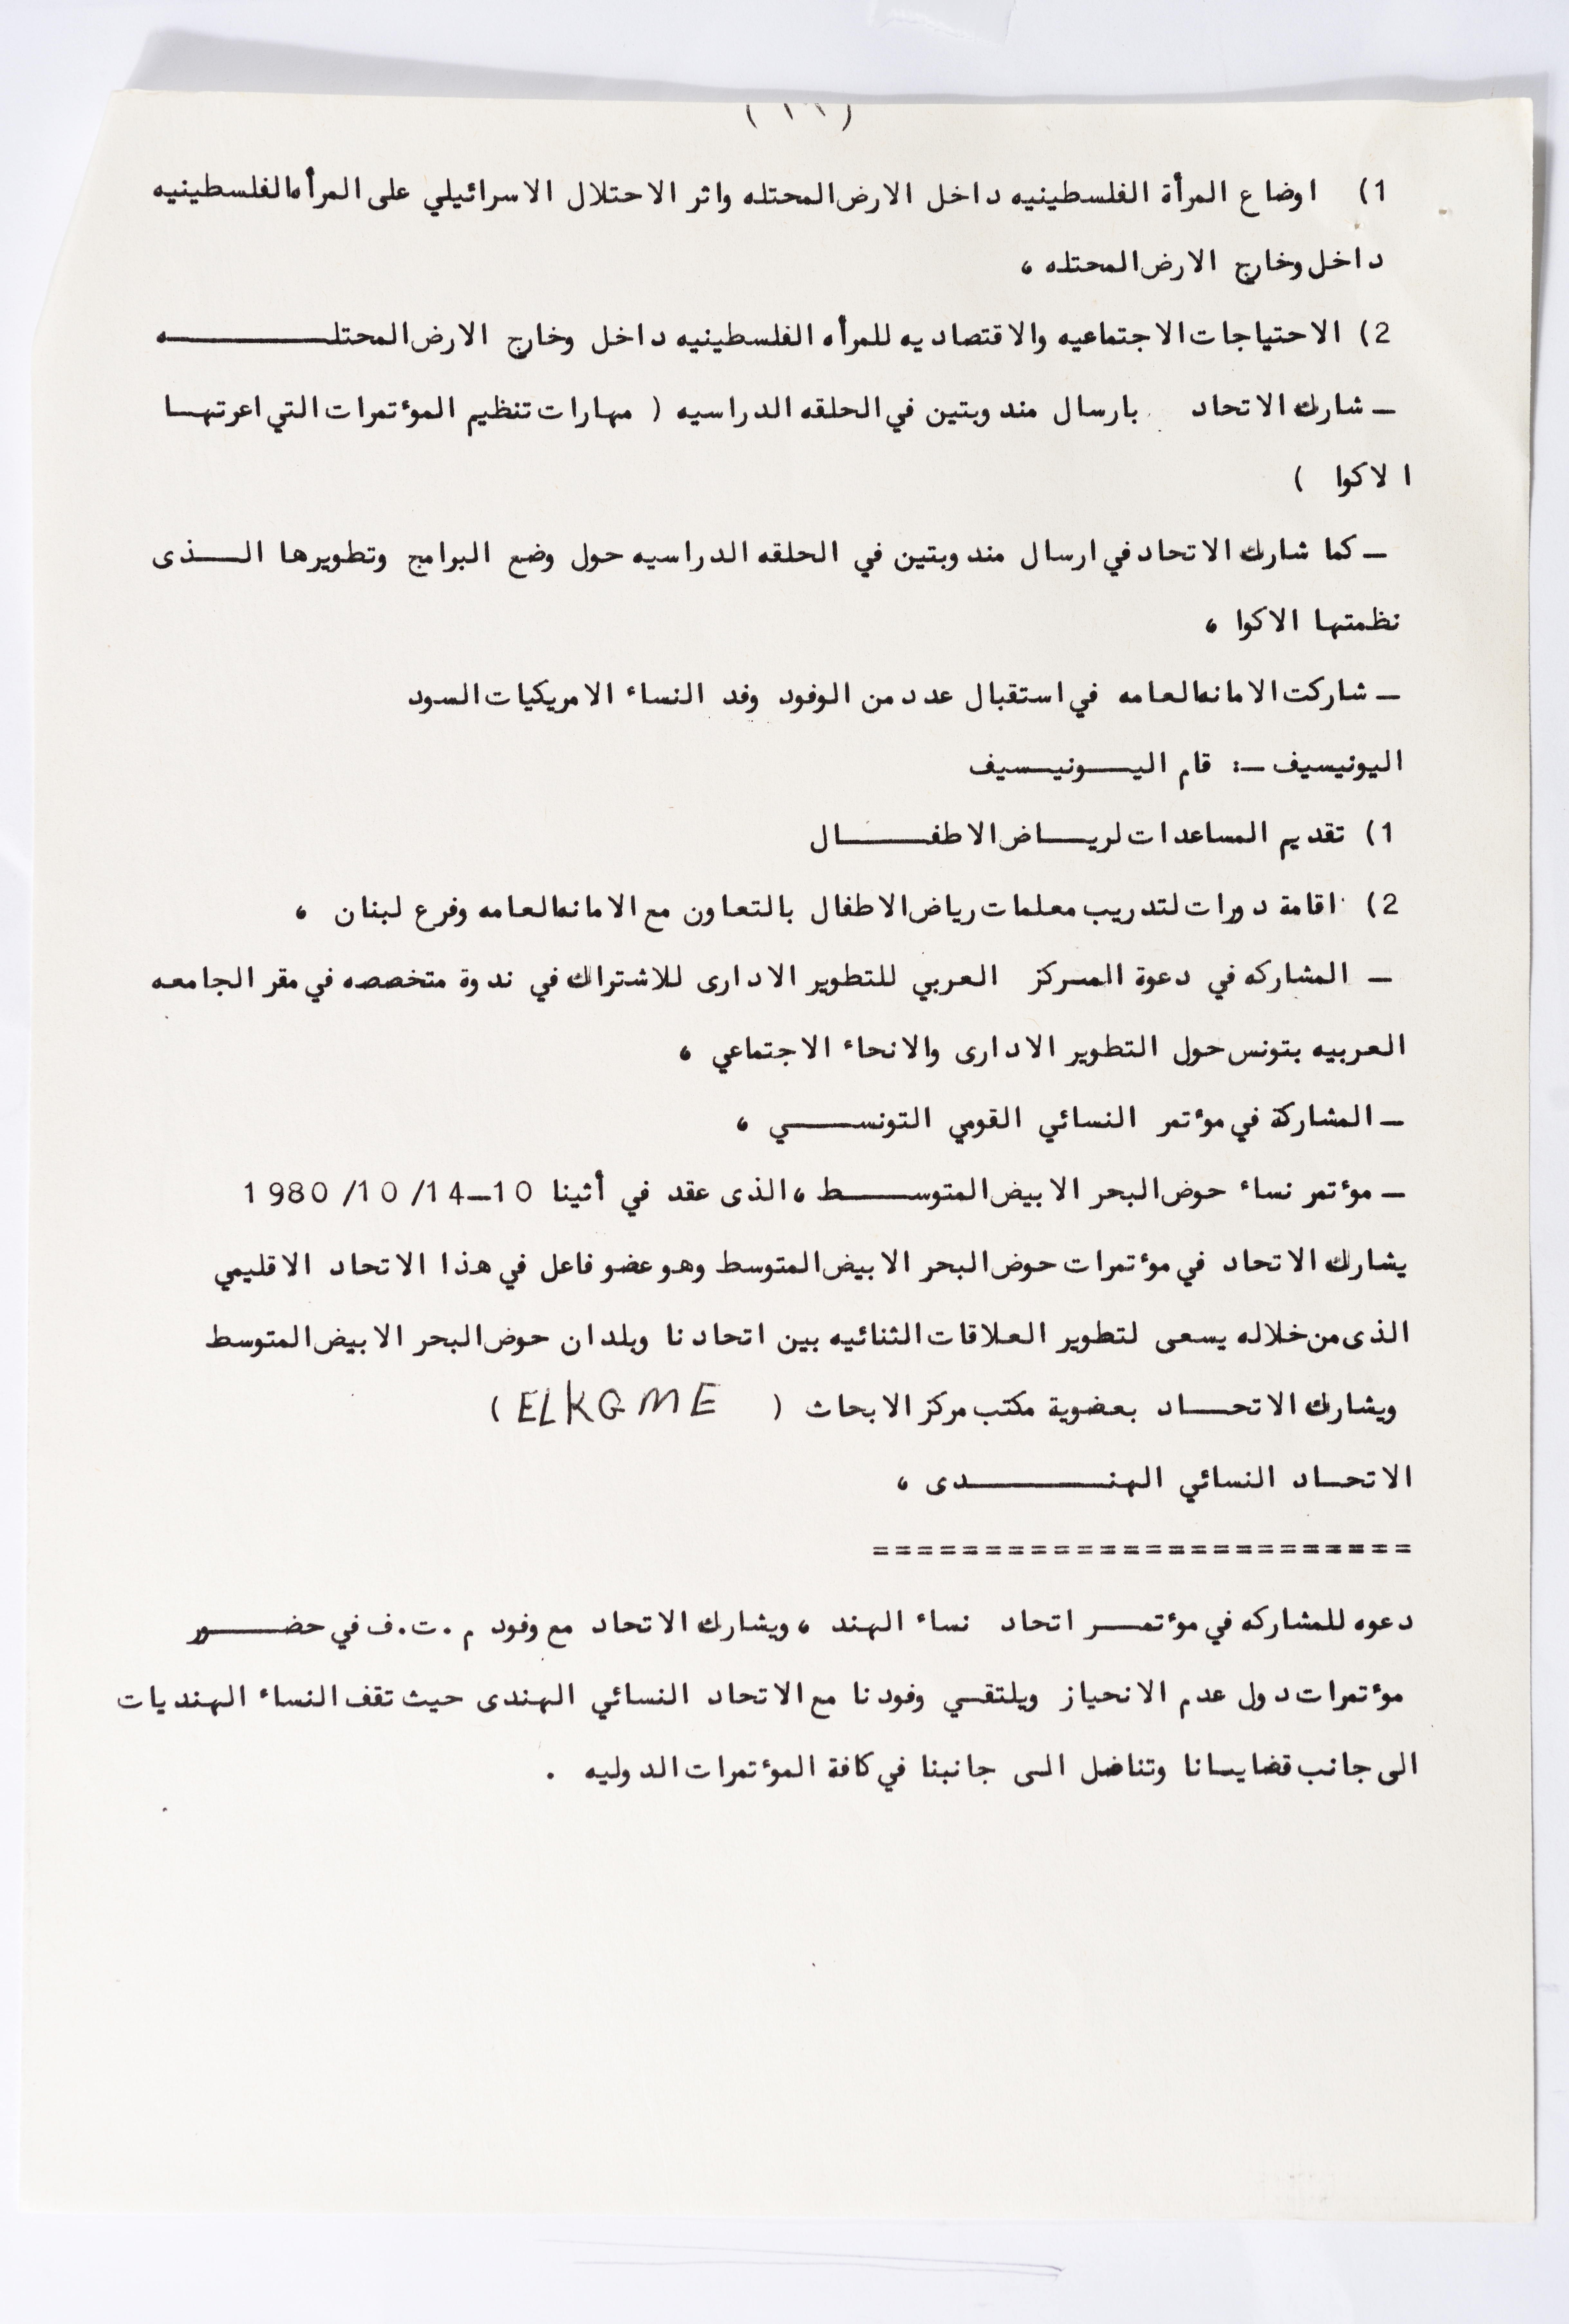 1) اوضاع المرأة الفلسطينيه داخل الارض المحتله واثر الاحتلال الاسرائيلي على المرأه الفلسطينيه
داخل وخارج الارض المحتله ،
2) الاحتياجات الاجتماعيه والاقتصاديه للمرأه الفلسطينيه داخل وخارج الارض المحتلـــــــه
ـ شارك الاتحاد بارسال مندوبتين في الحلقه الدراسيه ( مهارات تنظيم المؤتمرات التي اعرتهـا
الاكوا )
ـ كما شارك الاتحاد في ارسال مندوبتين في الحلقه الدراسيه حول وضع البرامج وتطويرها الــذى
نظمتها الاكوا ،
ـ شاركت الامانه العامه في استقبال عدد من الوفود وفد النساء الامريكيات السود
اليونيسيف ـ: قام اليــونيـسيف
1) تقديم المساعدات لريــاض الاطفــــال
2) اقامة دورات لتدريب معلمات رياض الاطفال بالتعاون مع الامانه العامه وفرع لبنان ،
ـ المشاركه في دعوة المركز العربي للتطوير الادارى للاشتراك في ندوة متخصصه في مقر الجامعه
العربيه بتونس حول التطوير الادارى والانحاء الاجتماعي ،
ـ المشاركة في مؤتمر النسائي القومي التونســـي ،
ـ مؤتمر نساء حوض البحر الابيض المتوســـط ، الذى عقد في أثينا 10ـ14/ 10/ 1980
يشارك الاتحاد في مؤتمرات حوض البحر الابيض المتوسط وهو عضو فاعل في هذا الاتحاد الاقليمي
الذى من خلاله يسعى لتطوير العلاقات الثنائيه بين اتحادنا وبلدان حوض البحر الابيض المتوسط
ويشارك الاتحـــاد بعضوية مكتب مركز الابحاث ( ELKGME )
الاتحــاد النسائي الهنـــــــدى ،
========================
دعوه للمشاركه في مؤتمــر اتحاد نساء الهند ، ويشارك الاتحاد مع وفود م.ت.ف في حضــــور
مؤتمرات دول عدم الانحياز ويلتقـي وفودنا مع الاتحاد النسائي الهندى حيث تقف النساء الهنديات
الى جانب قضايـانا وتناضل الـى جانبنا في كافة المؤتمرات الدوليه .